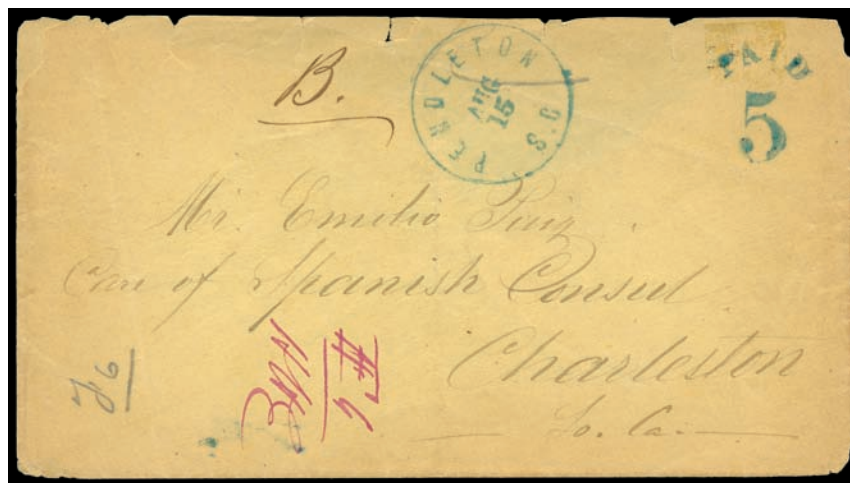 B.
PENDLETON S.C
AUG
15
PAID
5
Mr. Emilio Puig.
Care of Spanish Consul
Charleston
So. Ca.